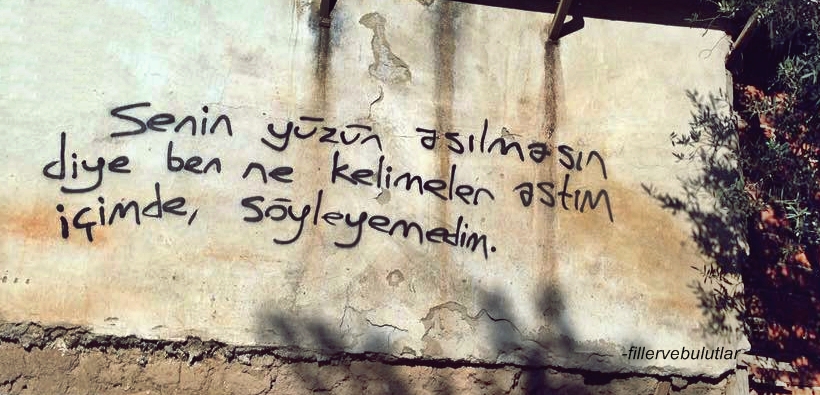 Senin yüzün asılmasın
diye ben ne kelimeler astım
içimde, söyleyemedim.
-fillervebulutlar